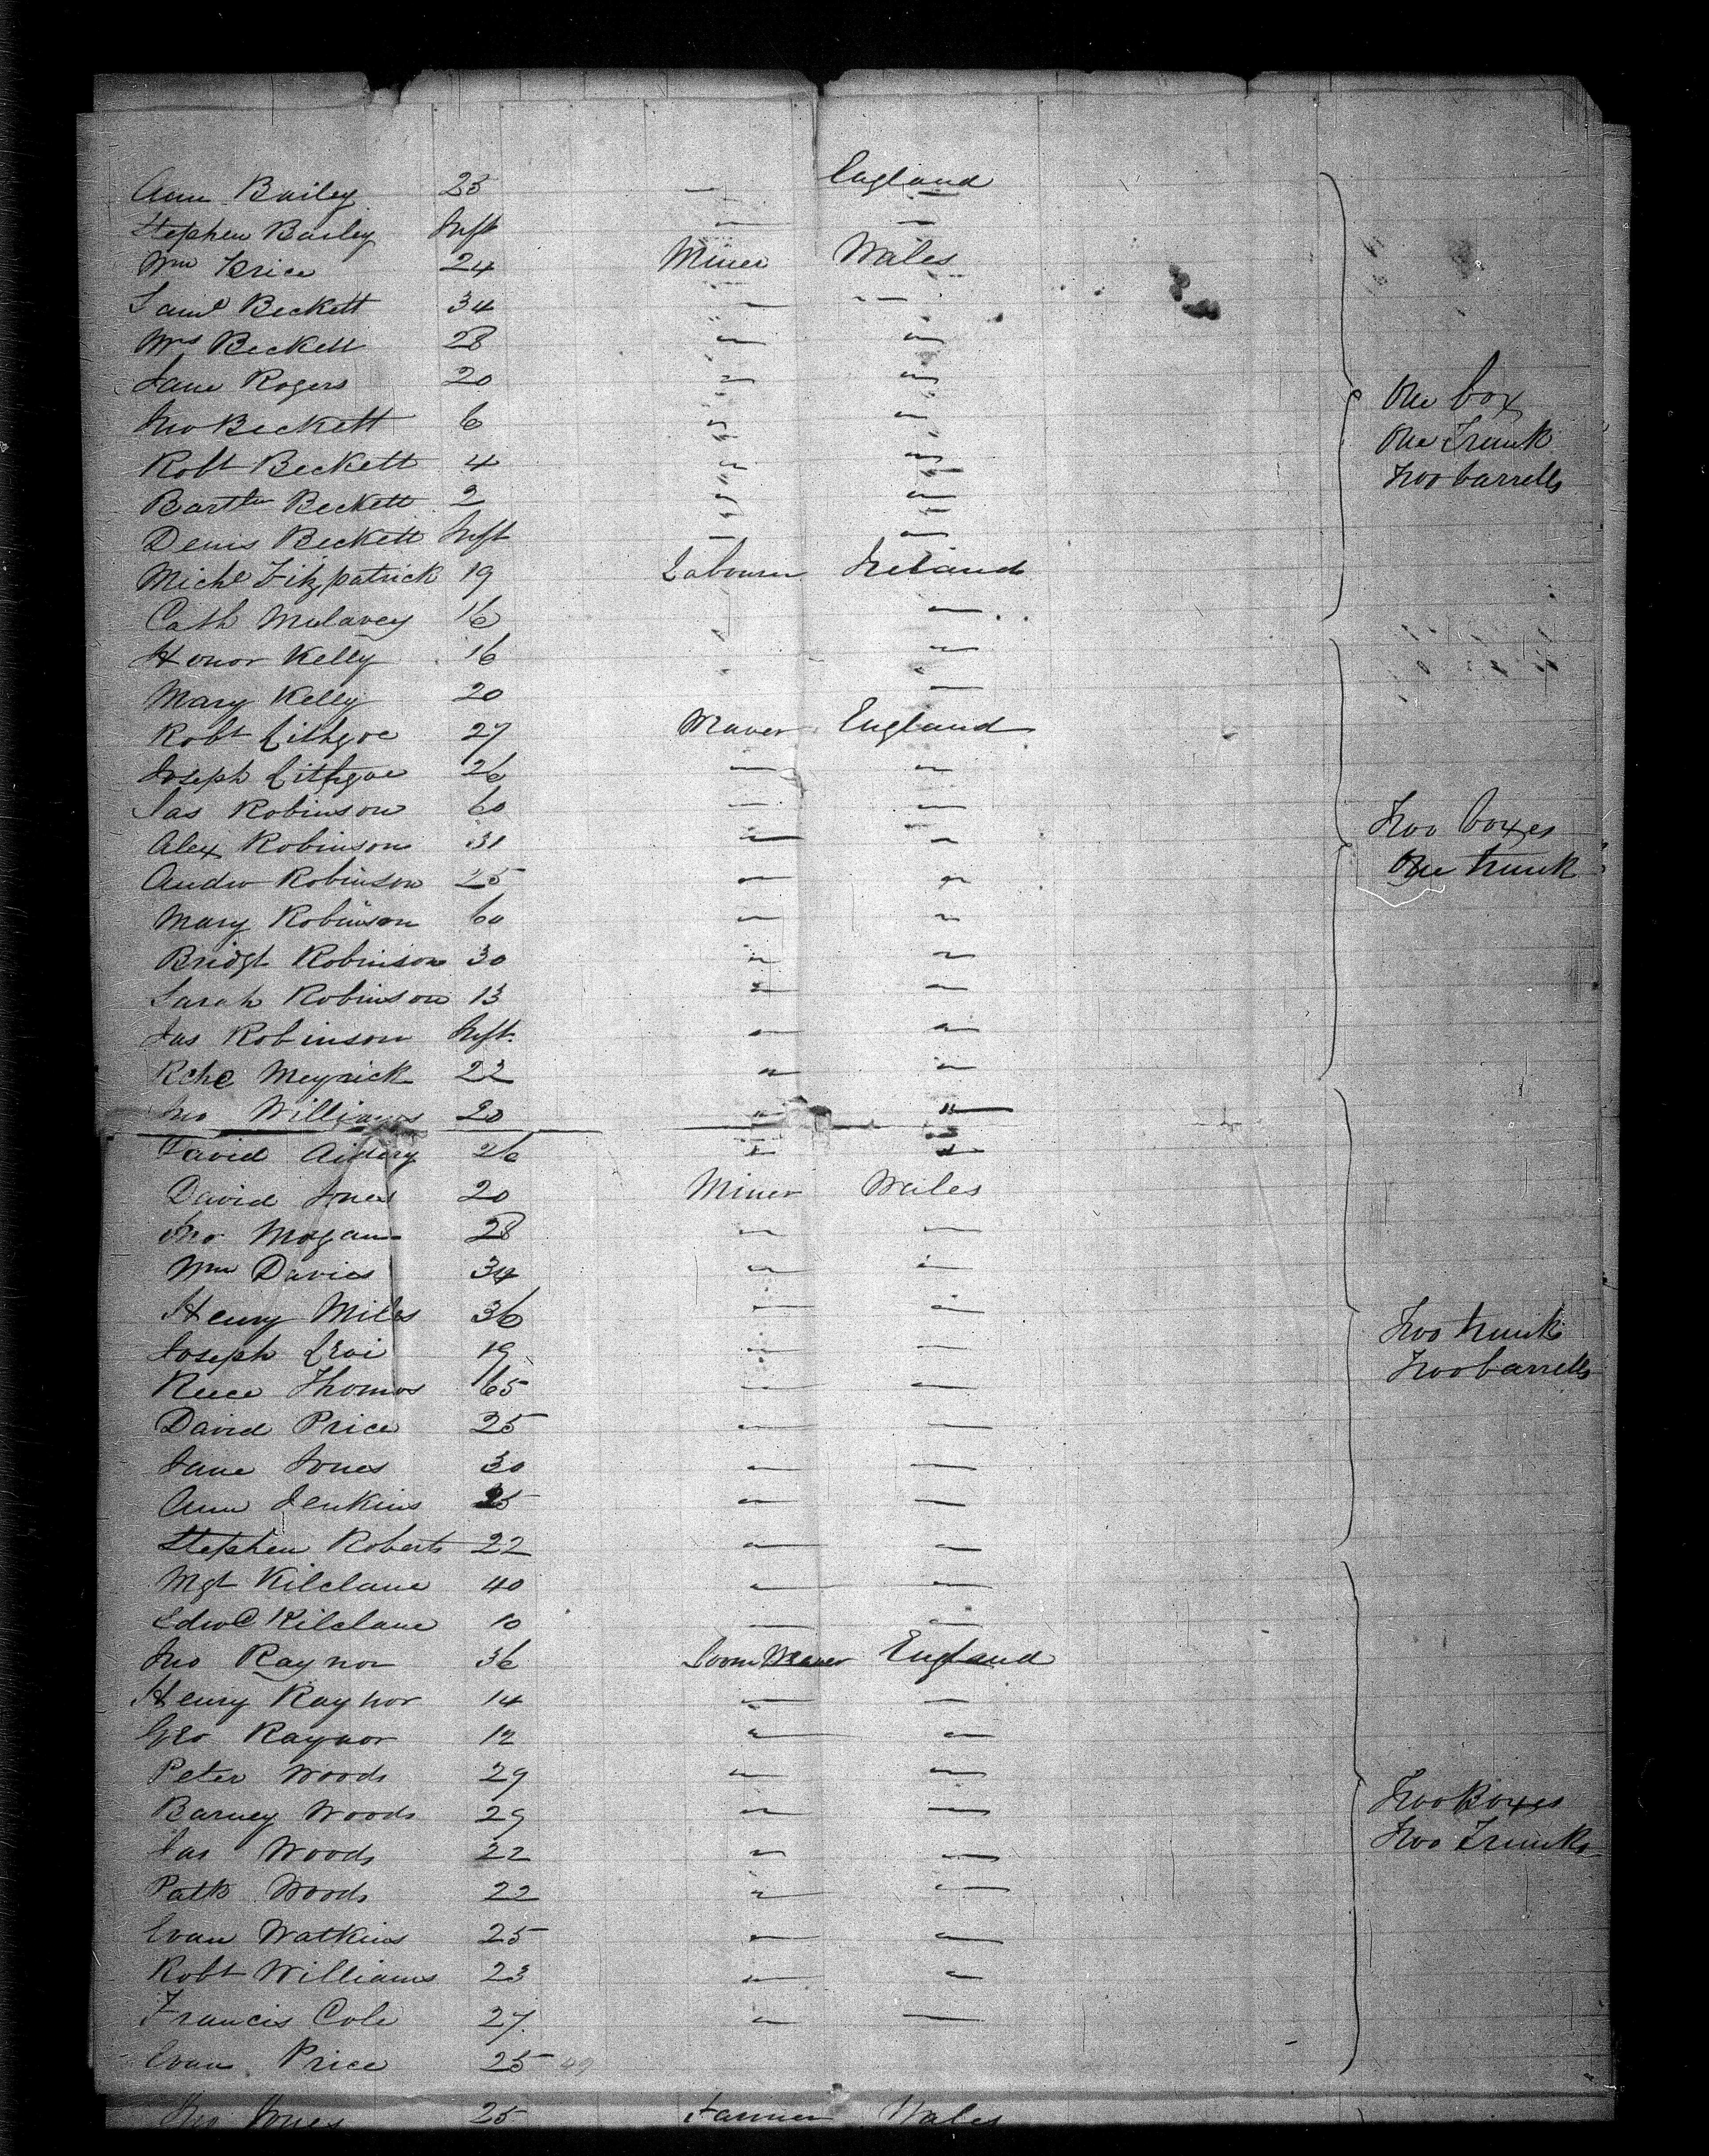 Ann Bailey 25 — England
Stephen Bailey Inft — —
Wm Price 24 Miner Wales
Saml Beckett 34 — —
Mrs Beckett 28 — —
Jane Rogers 20 — —
Jno Beckett 6 — —
One box
Robt Beckett 4 — —
One Trunk
Bartlw Beckett 2 — —
Two barrells
Denis Beckett Inft — —
Michl Fitzpatrick 19 Labourer Ireland
Cath Mulavey 16 —
Honor Kelly 16 —
Mary Kelly 20 —
Robt Lithgoe 27 Weaver England
Joseph Lithgoe 26 — —
Jas Robinson 60 — —
Two boxes
Alex Robinson 31 — —
One trunk
Andw Robinson 25 — —
Mary Robinson 60 — —
Bridgt Robinson 30 — —
Sarah Robinson 13 — —
Jas Robinson Inft. — —
Meyrick 22 — —
Jno Williams 20 " "
David 26 — —
David Jones 20 Miner Wales
Jno Mogan 28 — —
Wm Davies 34 — —
Henry Miles 36 — —
Two trunk
Joseph 19 — —
Two barrells
Reece Thomas 65 — —
David Price 25 — —
Jane Jones 30 — —
Ann Jenkins 25 — —
Stephen Roberts 22 — —
Mgt Kilclane 40 — —
Edwd Kilclane 10 — —
Jno Raynor 36 Loom Weaver England
Henry Raynor 14 — —
Geo Raynor 12 — —
Peter Woods 29 — —
Two Boxes
Barney Woods 29 — —
Two Trunks
Jas Woods 22 — —
Patk Woods 22 — —
Evan Watkins 25 — —
Robt Williams 23 — —
Francis Cole 27 — —
Evan Price 25 49
Jno Jones 25 Farmer Wales